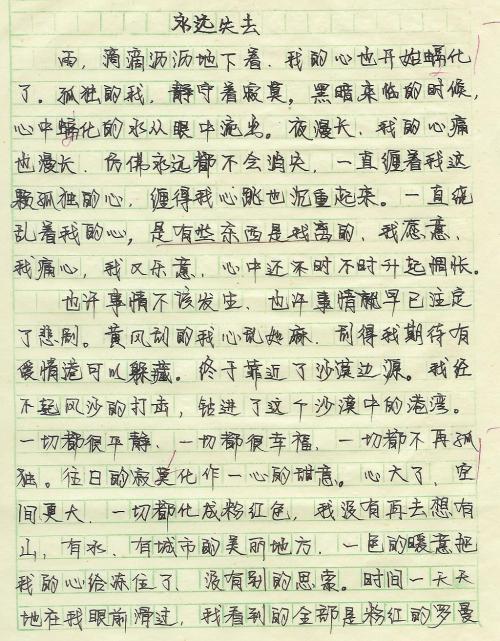 永远失去
雨，滴滴沥沥地下着、我的心也开始蝠化
了。孤独的我，静守着寂莫。黑暗来临的时候，
心中蝠化的水从眼中流出。夜漫长、我的心痛
也漫长、仿佛永远都不会消失，一直缠着我这
颗孤独的心，缠得我心跳也沉重起来。一直绕
乱着我的心，是有些东西是我离的、我愿意、
我痛心，我又乐意、心中还不时不时升起惆怅。
也许事情不该发生、也许事情就早已注定
了悲剧。黄风刮的我心乱如麻、刮得我期待有
爱情港可以躲藏。终于靠近了沙漠边源。我经
不起风沙的打击，钻进了这个沙漠中的港湾。
一切都很平静、一切都很幸福、一切都不再孤
独。往日的寂莫化作一心的甜意。心大了、空
间更大、一切都化成粉红色，我没有再去想有
山，有水、有城市的美丽地方、一色的暖意把
我的心给冻住了、没有别的思索。时间一天天
地在我眼前滑过，我看到的全部是粉红的罗曼